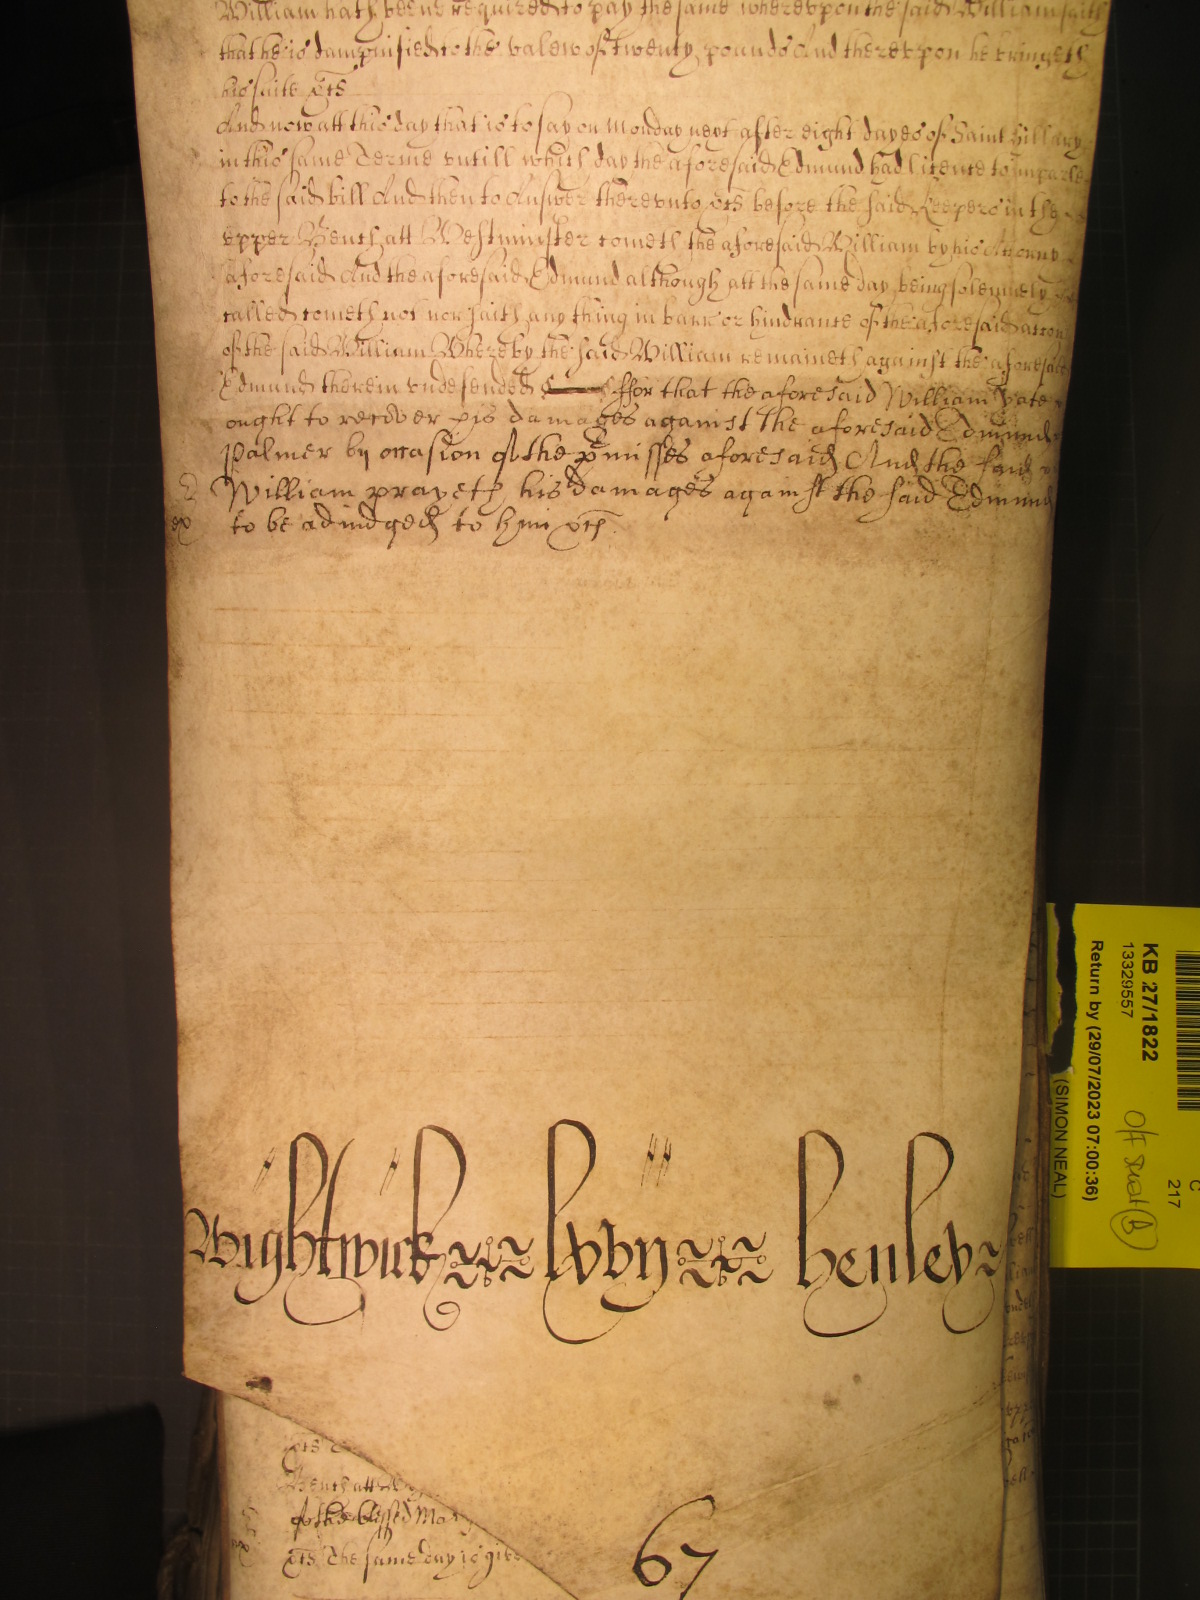 William hath beene required to pay the same wherevpon the said William saith
that he is dampnified to the valew of twenty pounds And therevpon he bringeth
his suite &cts
And now att this day that is to say on Monday next after eight dayes of Saint Hillary
in this same Terme vntill which day the aforesaid Edmund had licence to imparle
to the said bill And then to Answer therevnto &cts before the said Keepers in the
vpper Bench att Westminster cometh the aforesaid William by his Attorny
aforesaid And the aforesaid Edmund although att the same day being solemnely
called cometh not nor saith any thing in barr or hindrance of the aforesaid accon
of the said William Whereby the said William remaineth against the aforesaid
Edmund therein vndefended ffor that the aforesaid William Pate
ought to recover his damages against the aforesaid Edmund
Palmer by occasion of the pmisses aforesaid And the said
William prayeth his damages against the said Edmund
ex to be adiudged to him &cts
Wightwick Lyvy Henley
&cts
Bench att
of the blessed Mar
&cts The same day is give
67
KB 27/1822
13329557
Return by (29/07/2023 07:00:36)
(SIMON NEAL)
C
217